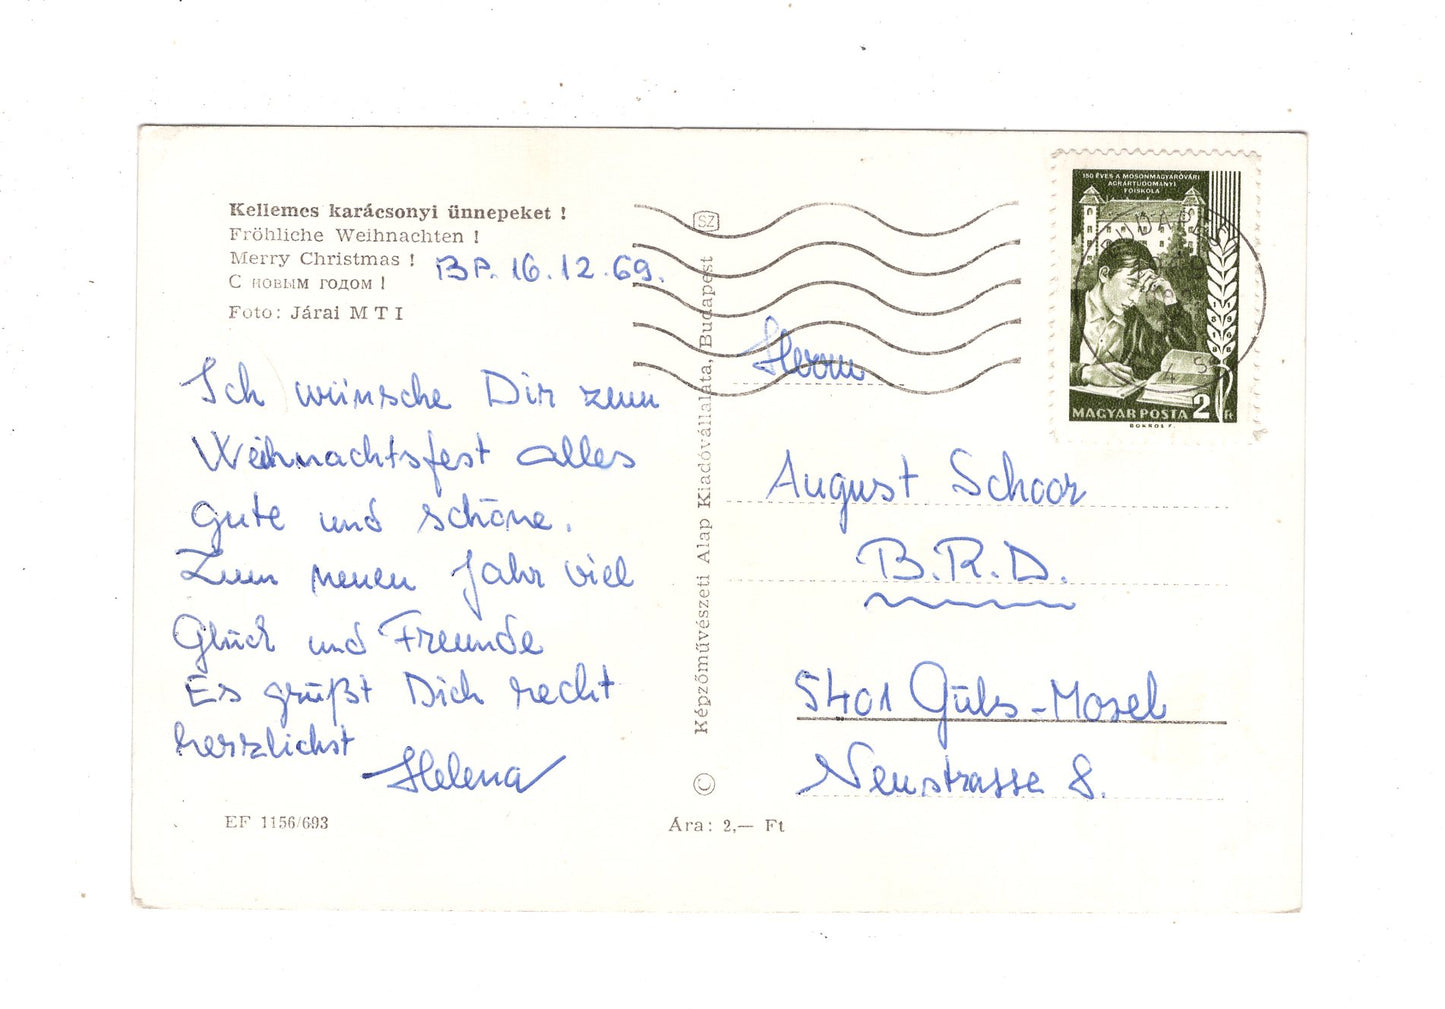 Kellemes karácsonyi ünnepeket !
Fröhliche Weihnachten !
Merry Christmas !
С новым годом !
Foto: Járai M T I
BP. 16.12.69.
Ich wünsche Dir zum
Weihnachtsfest alles
gute und schöne.
Zum neuen Jahr viel
Glück und Freunde
Es grüßt Dich recht
herzlichst
Helena
EF 1156/693
SZ
Képzőművészeti Alap Kiadóvállalata, Budapest
©
Ára: 2,— Ft
150 ÉVES A MOSONMAGYARÓVÁRI
AGRÁRTUDOMÁNYI
FŐISKOLA
1 1
8 9
1 6
8 8
MAGYAR POSTA 2 Ft
Herrn
August Schoor
B.R.D.
5401 Güls-Mosel
Neustrasse 8.